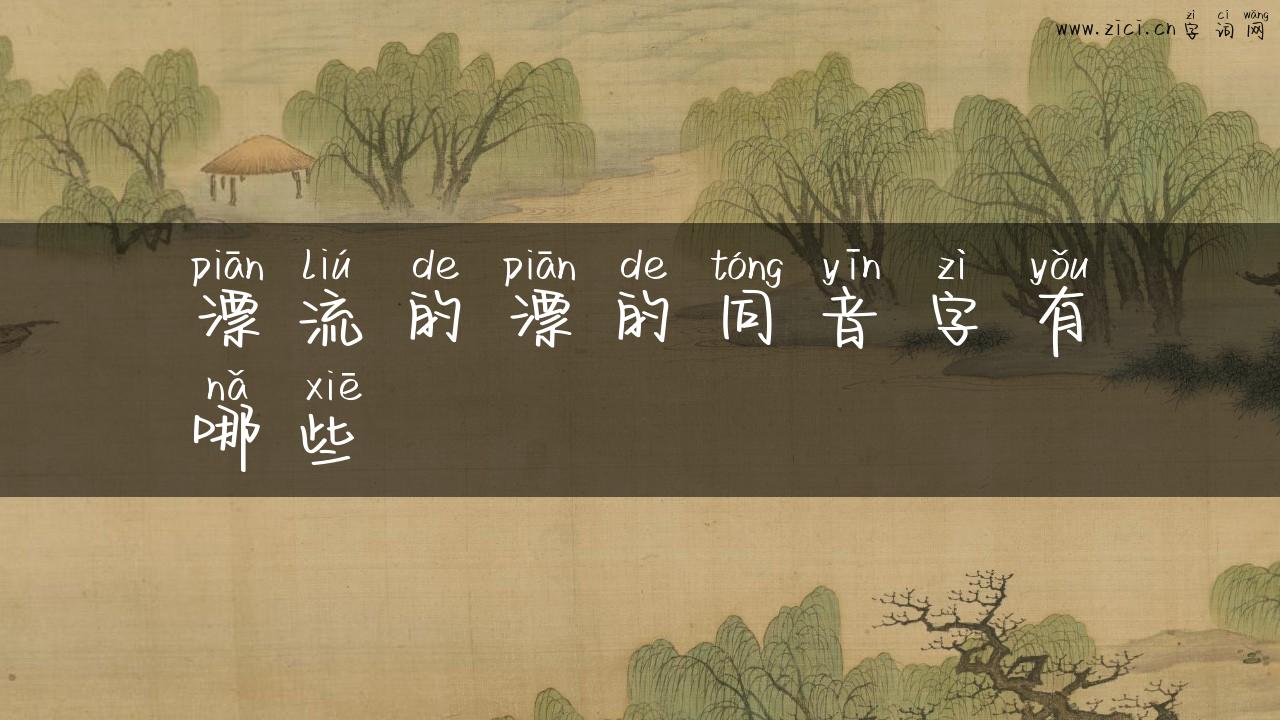 zì cí wǎng
www.zici.cn 字词网
piān liú de piān de tóng yīn zì yǒu
漂流的漂的同音字有
nǎ xiē
哪些